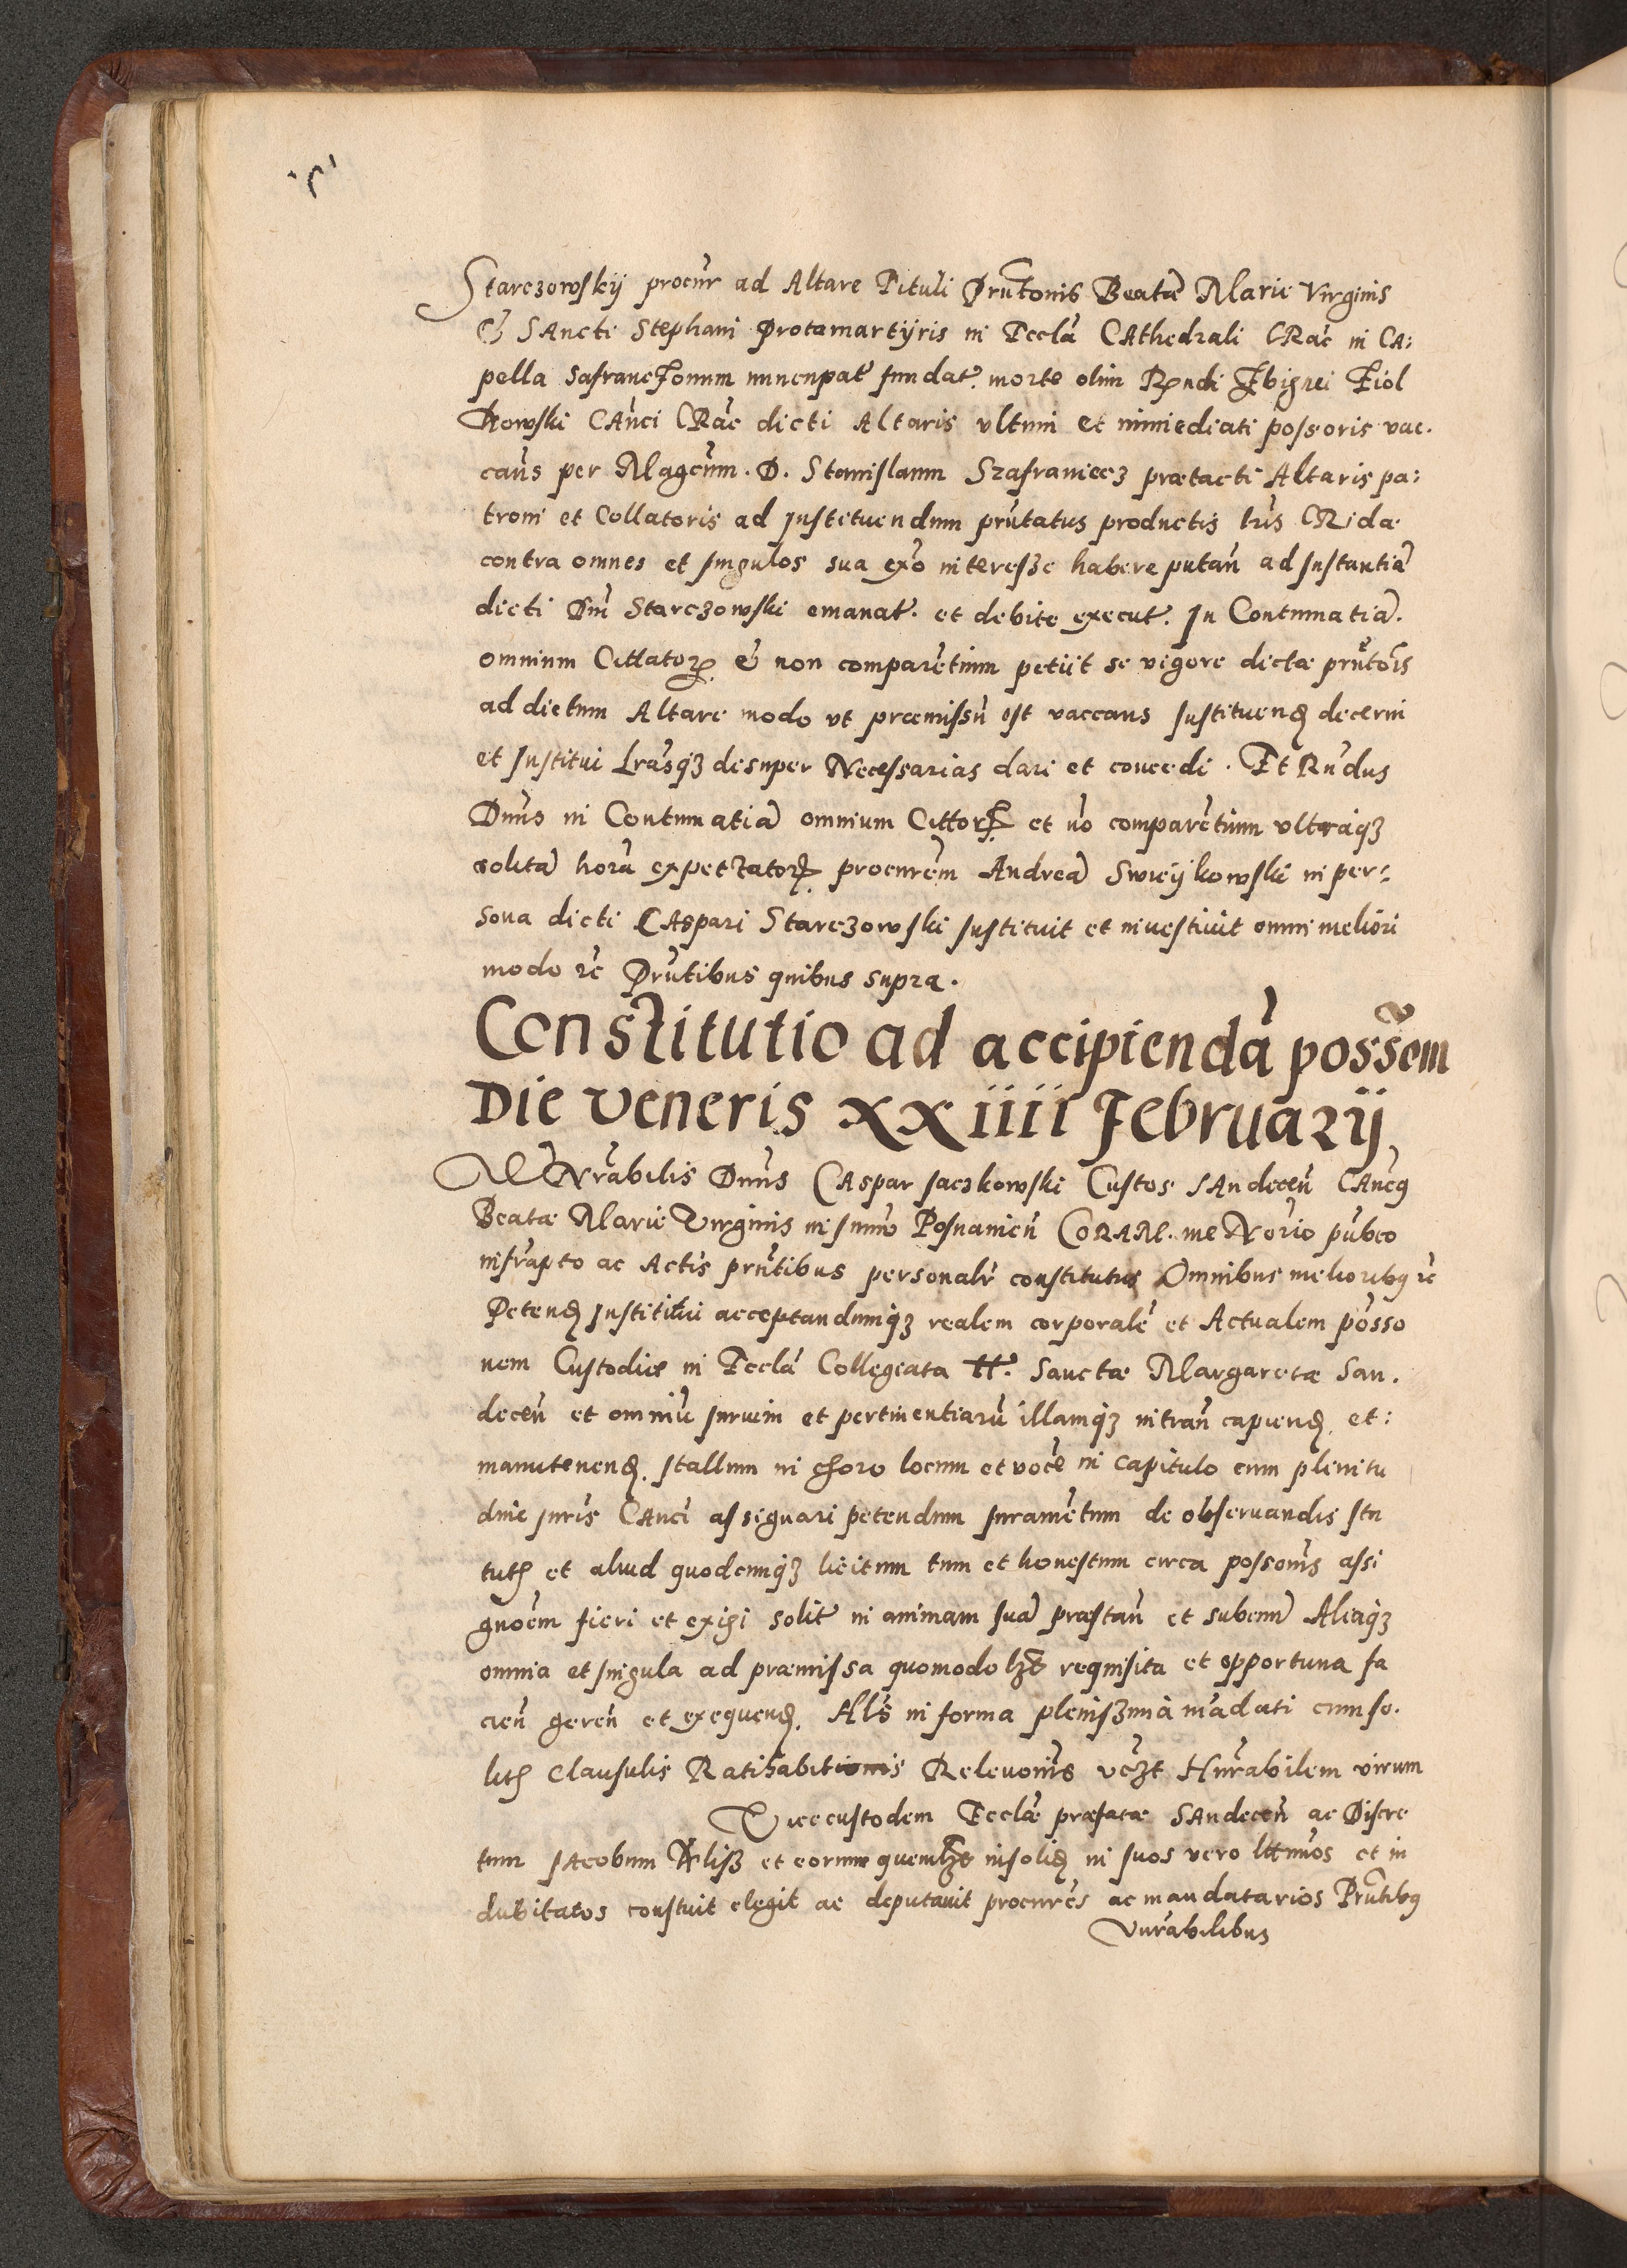 Starczowskij procur̄ ad Altare Tituli Pru͞tonis Beatæ Marie Virginis
& SAncti Stephani Protomartÿris in Eccla͞ CAthedrali CRac̄ in CA:
pella Safranczonum nuncupat̄ fundat̄. morte olim Rn̄di Sbignei Ziol
kowski CAn̄ci CRac̄ dicti Altaris vltimi et immediati possoris vac.
can̄s per Magcum̄. D. Stanislaum Szafraniecz prætacti Altaris pa:
troni et Collatoris ad Instetuendum pru͞tatus productis lr̄is CRidæ
contra omnes et singulos sua ex̄o interesse habere putan̄ ad Instantia͞
dicti Dn̄i Starczowski emanat̄. et debite execut̄. In Contumatia͞.
omnium Cittator̄ & non compare͞tium petiit se vigore dictæ pru͞to͞is
ad dictum Altare modo vt præmissū est vaccans Instituend̄ decerni
et Institui Lrāsq̄ȝ desuper Necessarias dari et concedi. Et Rn̄dus
Dn̄us in Contumatia͞ omnium Cittor̄ et nō compare͞tium vltraq̄ȝ
solita͞ hora͞ expectator̄ procurem̄ Andrea͞ Swieÿkowski in per:
sona dicti CAspari Starczowski Instituit et inuestiuit omni meliori
modo ⁊c̄ Pru͞tibus quibus supra.
Constitutio ad accipienda͞ posse͞m
Die Veneris xxiiii Februarij
VENrābilis Dn̄us CAspar Jaczkowski Custos SAndecen̄ CAn̄cq
Beatæ Marie Virginis in Sum̄o Posnanien̄ CORAM. me Nor̄io pūbco
infrāpto ac Actis pru͞tibus personalr̄ constitutus Omnibus melioribq ⁊c̄
Petend̄ Institui acceptandumq̄ȝ realem corporale͞ et Actualem pōsso
nem Custodiæ in Eccla͞ Collegiata tt̄. Sanctæ Margaretæ San.
decen̄ et omniū Iurium et pertinentiarū illamq̄ȝ intran̄ capiend̄. et:
manutenend̄. stallum in choro locum et voce͞ in capitulo cum plenitu
dine Iuris CAn̄ci assignari petendum Iurame͞tum de obseruandis sta
tutis et aliud quodcunq̄ȝ licitum tum et honestum circa posson̄is assi
gnoe͞m fieri et exigi solit̄ in animam sua͞ præstan̄ et subeun̄ Aliaq̄ȝ
omnia et singula ad præmissa quomodolȝt̄ requisita et opportuna fa
cien̄ geren̄ et exequend̄. Als̄ in forma plenissima͞ mādati cum so.
litis clausulis Ratihabitionis Releuon̄is vcȝ̄t Hnrābilem virum
Vicecustodem Eccla͞e præfatæ SAndecen̄ ac Discre
tum JAcobum et eorum quemlȝt̄ insolid̄ in suos vero lttimos et in
dubitatos constuit elegit ac deputauit procurēs ac mandatarios Pru͞tibq
Vnrābilibus